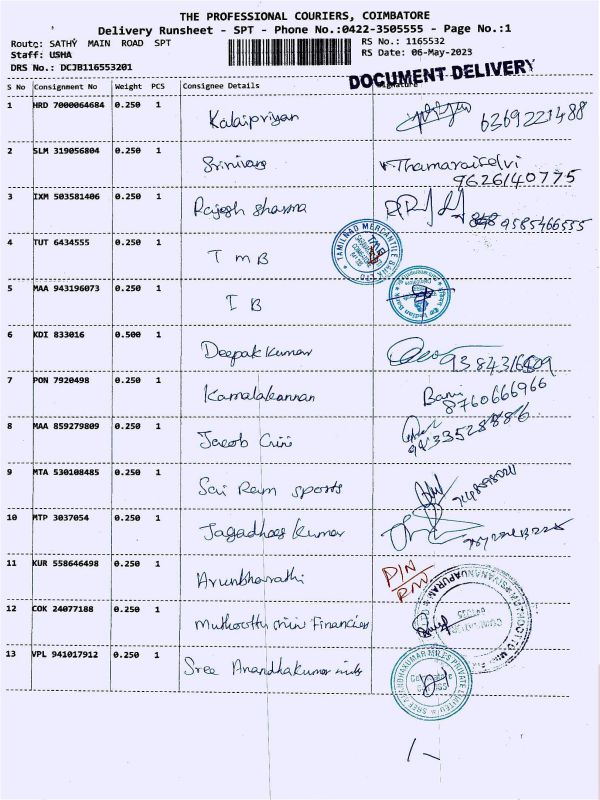 THE PROFESSIONAL COURIERS, COIMBATORE
Delivery Runsheet - SPT - Phone No.:0422-3505555 - Page No.:1
Route: SATHY MAIN ROAD SPT
RS No.: 1165532
Staff: USHA
RS Date: 06-May-2023
DRS No.: DCJB116553201
DOCUMENT DELIVERY
S No Consignment No Weight PCS Consignee Details Signature
1 HRD 7000064684 0.250 1 Kalaipriyan 6369221488
2 SLM 319056804 0.250 1 Srinivas Thamaraiselvi
9626140775
3 IXM 503581406 0.250 1 Rajesh Sharma 9585466555
4 TUT 6434555 0.250 1 T M B TAMILNAD MERCANTILE BANK LTD
5 MAA 943196073 0.250 1 I B Indian Bank
6 KDI 833016 0.500 1 Deepak Kumar
7 PON 7920498 0.250 1 Kamalakannan
8760666966
8 MAA 859279809 0.250 1 Jacob
9 MTA 530108485 0.250 1 Sai Ram sports
10 MTP 3037054 0.250 1 Kumar
11 KUR 558646498 0.250 1 Arunbharathi
12 COK 24077188 0.250 1 Financies
13 VPL 941017912 0.250 1 Sree Anandhakumar mills
SREE ANANDHAKUMAR MILLS PRIVATE LIMITED